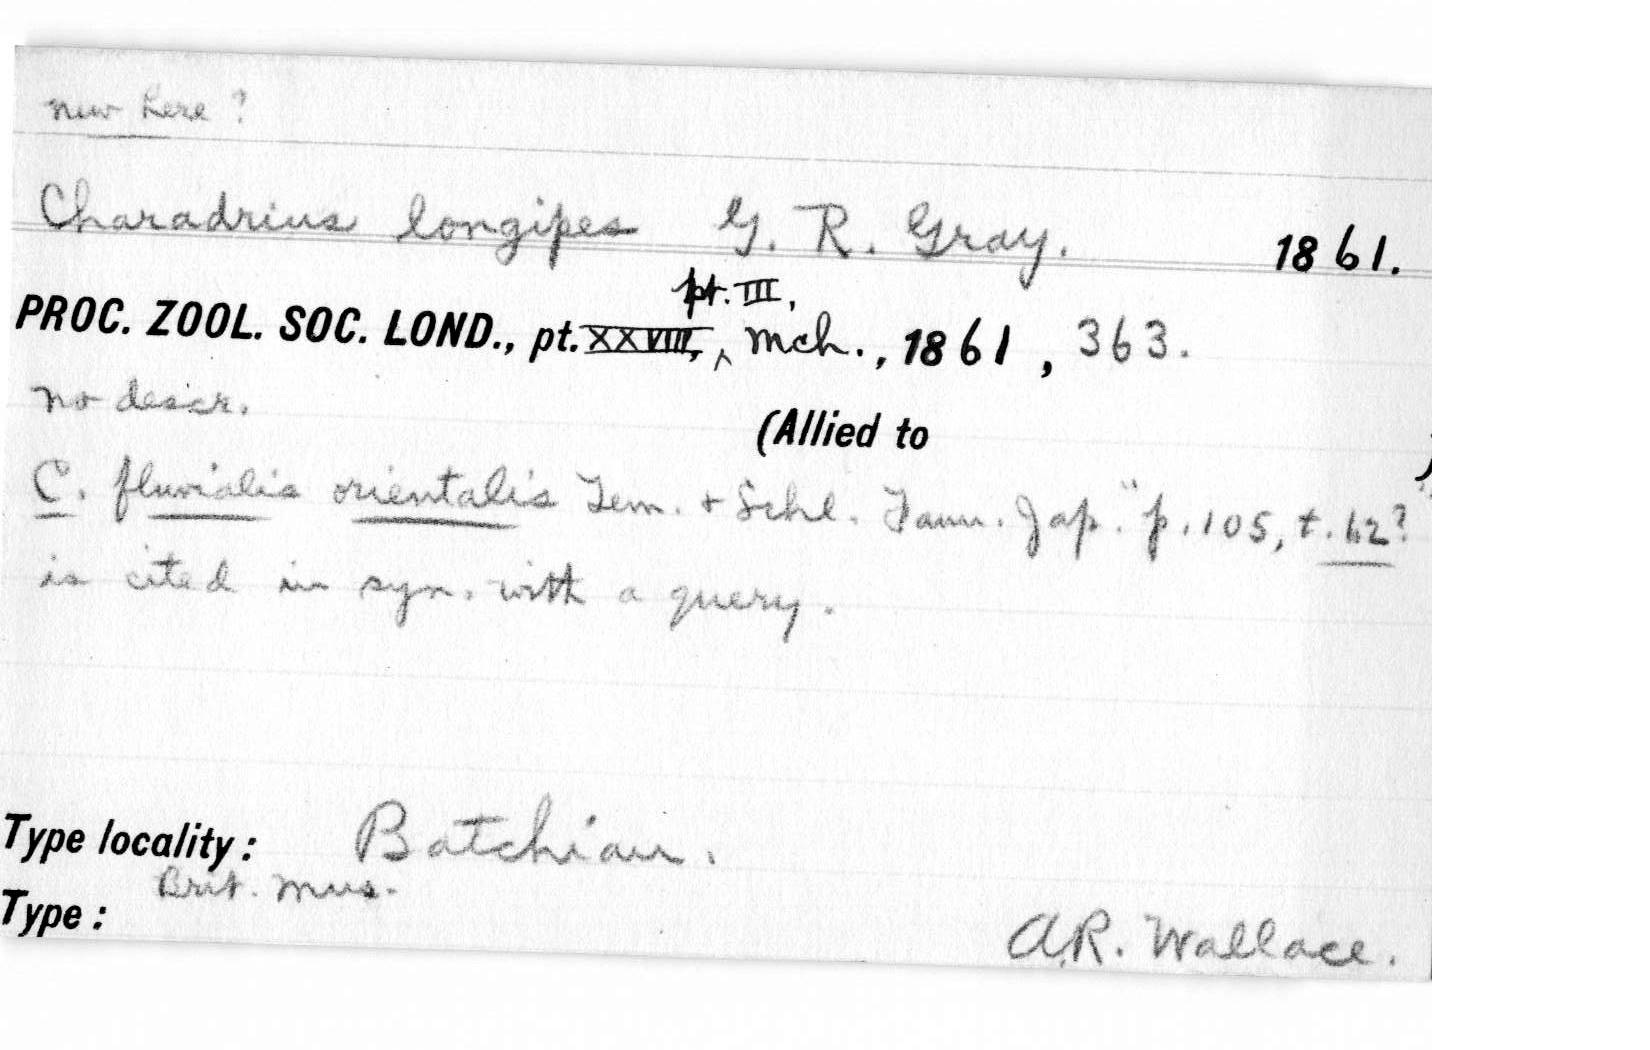 new here ?
Charadrius longipes G. R. Gray. 1861.
pt. III,
PROC. ZOOL. SOC. LOND., pt. XXVIII, ‸ Mch., 1861, 363.
no descr.
(Allied to )
C. fluvialis orientalis Tem. + Schl. Faun. Jap." p. 105, t. 62? "
is cited in syn. with a query.
Type locality: Batchian.
Brit. Mus.
Type:
A.R. Wallace.